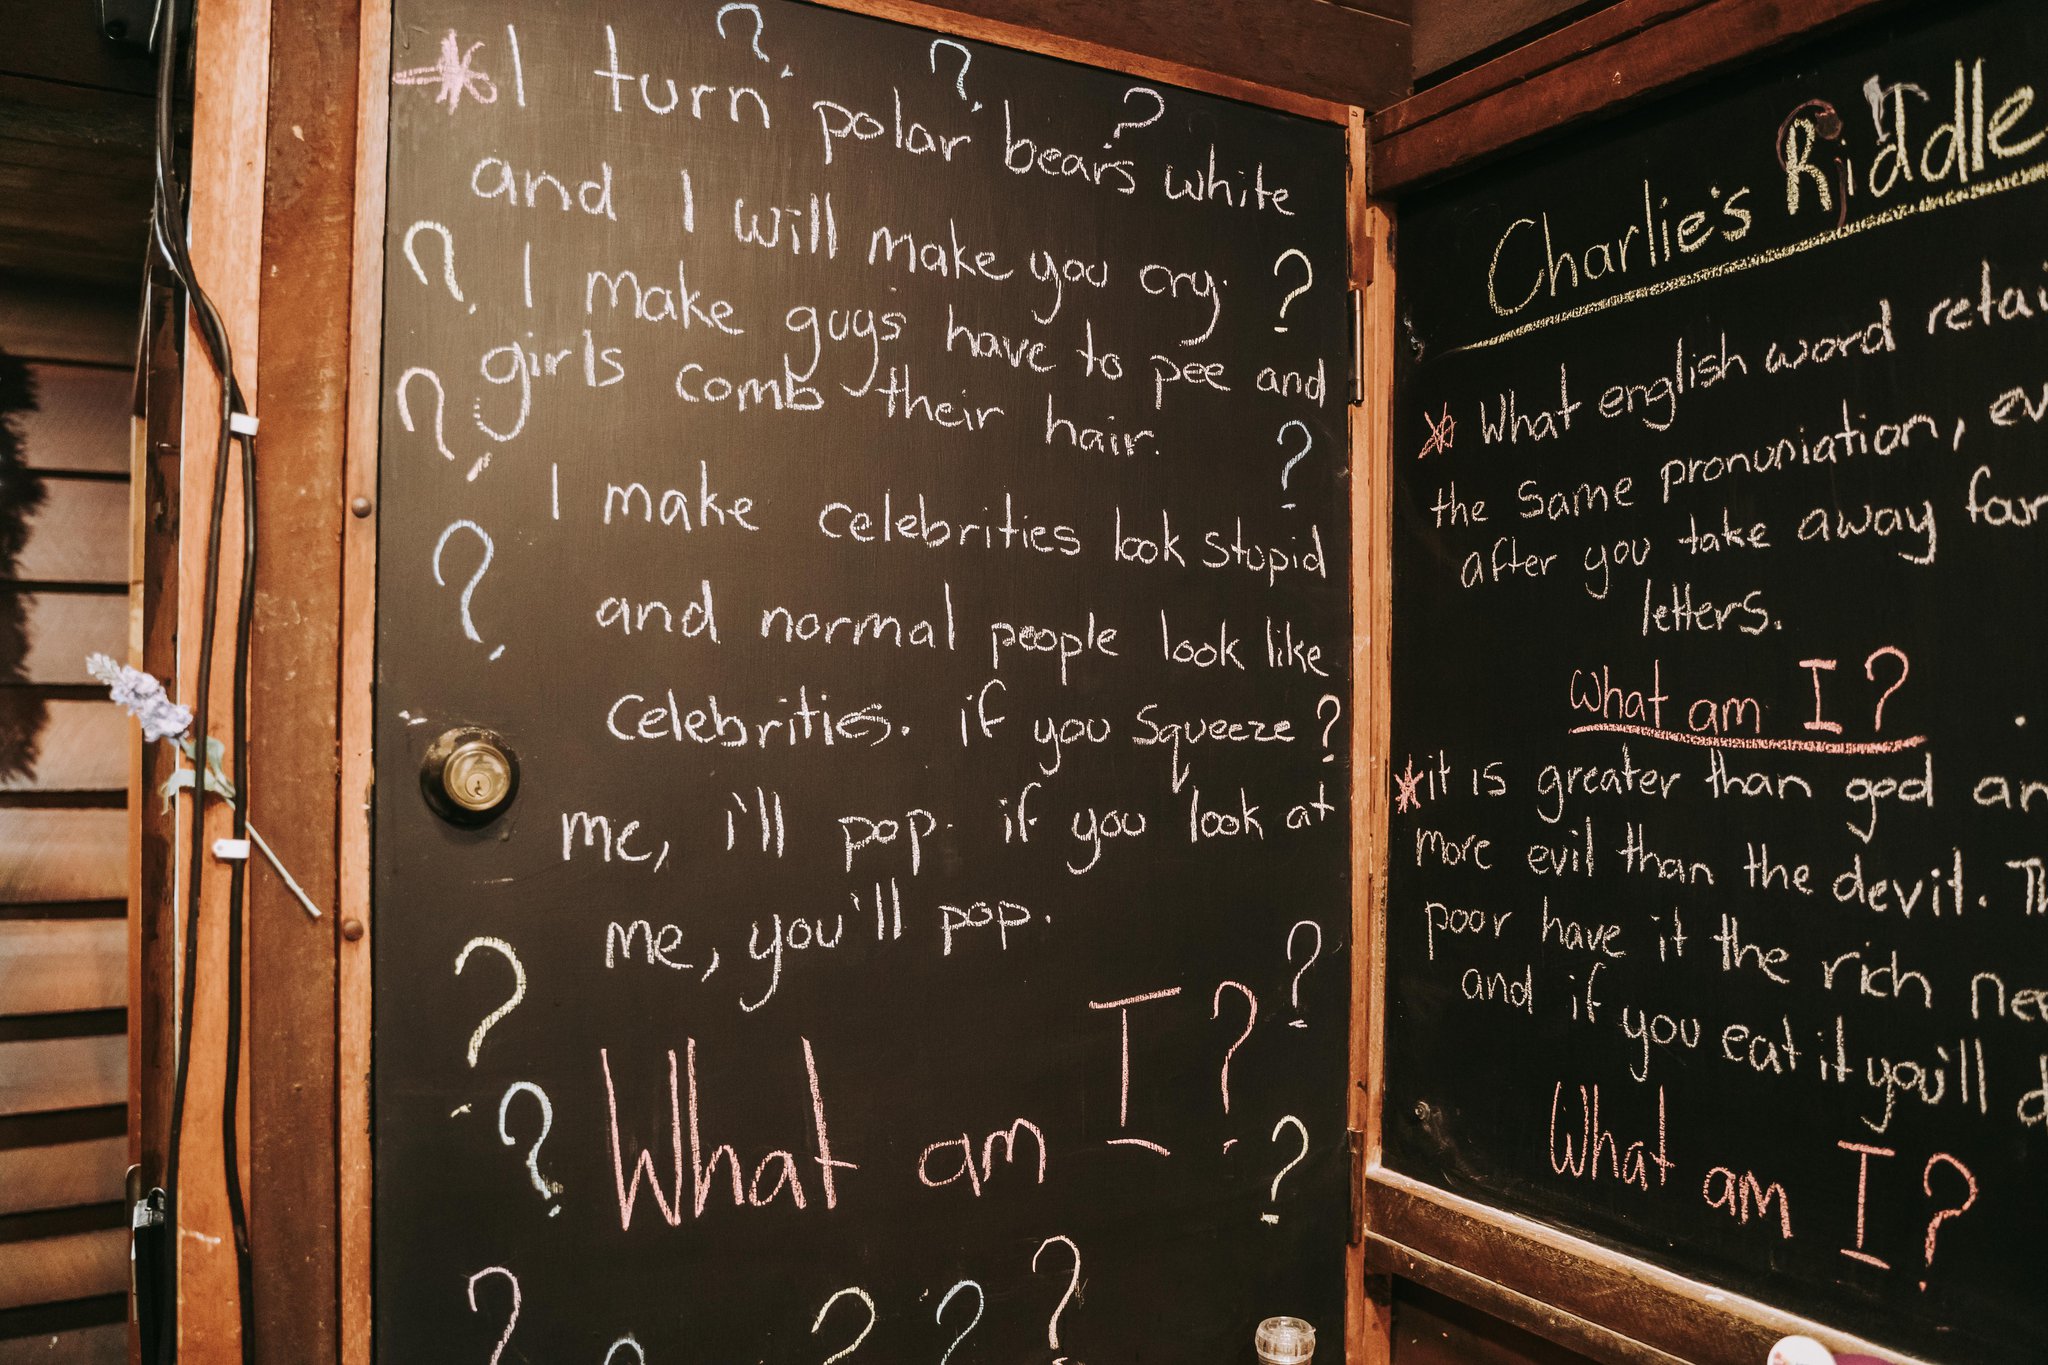 I turn polar bears white
and I will make you cry.
I make guys have to pee and
girls comb their hair.
I make celebrities look stupid
and normal people look like
celebrities. if you squeeze
me, i'll pop. if you look at
me, you'll pop.
What am I?
Charlie's Riddle
What english word
the same pronuniation,
after you take away four
letters.
What am I?
it is greater than god
more evil than the devil.
poor have it the rich
and if you eat it you'll
What am I?